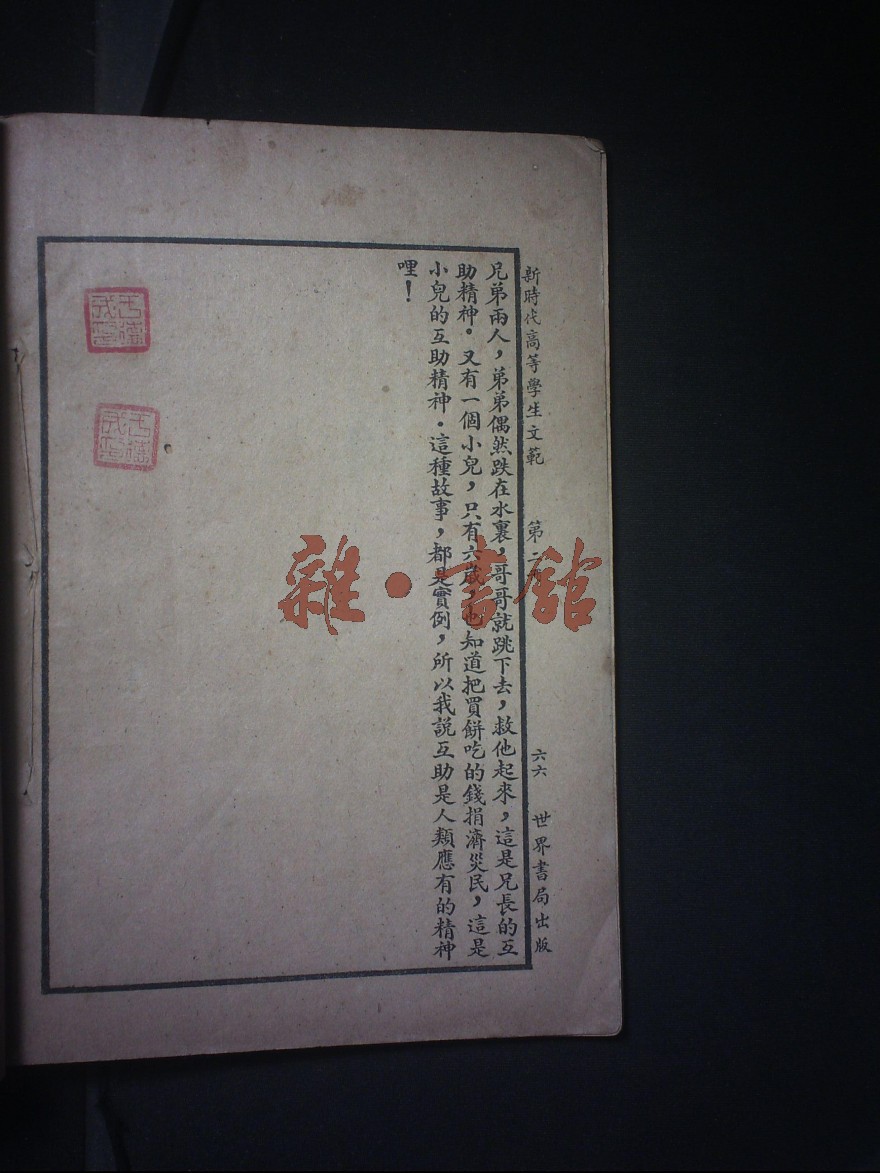 新時代高等學生文範 第二 六六 世界書局出版
兄弟兩人，弟弟偶然跌在水裏，哥哥就跳下去，救他起來，這是兄長的互
助精神。又有一個小兒，只有六歲，也知道把買餅吃的錢捐濟災民，這是
小兒的互助精神。這種故事，都是實例，所以我說互助是人類應有的精神
哩！
雜·書館